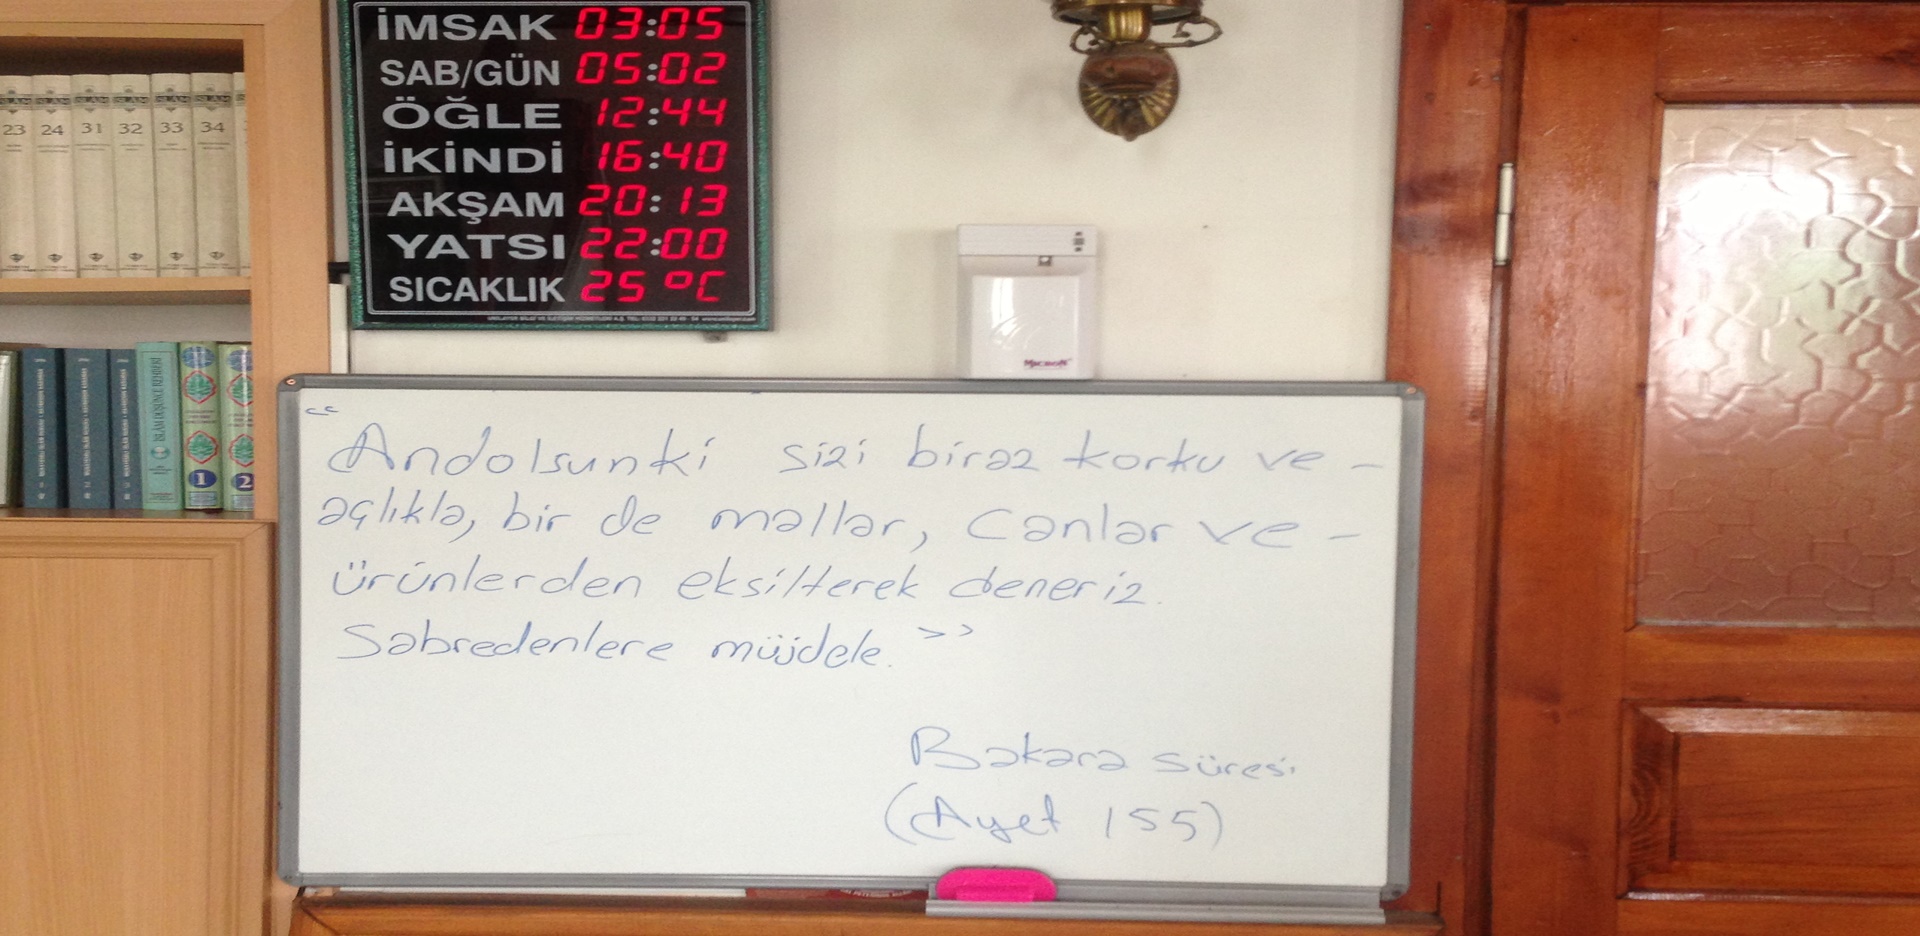 İMSAK 03:05
SAB/GÜN 05:02
ÖĞLE 12:44
İKİNDİ 16:40
AKŞAM 20:13
YATSI 22:00
SICAKLIK 25 °C
23 24 31 32 33 34
1 2
"Andolsunki sizi biraz korku ve -
açlıkla, bir de mallar, Canlar ve -
ürünlerden eksilterek deneriz.
Sabredenlere müjdele."
Bakara Süresi
(Ayet 155)